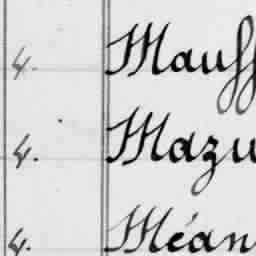 4. Mauff
4. Mazu
4. Méan